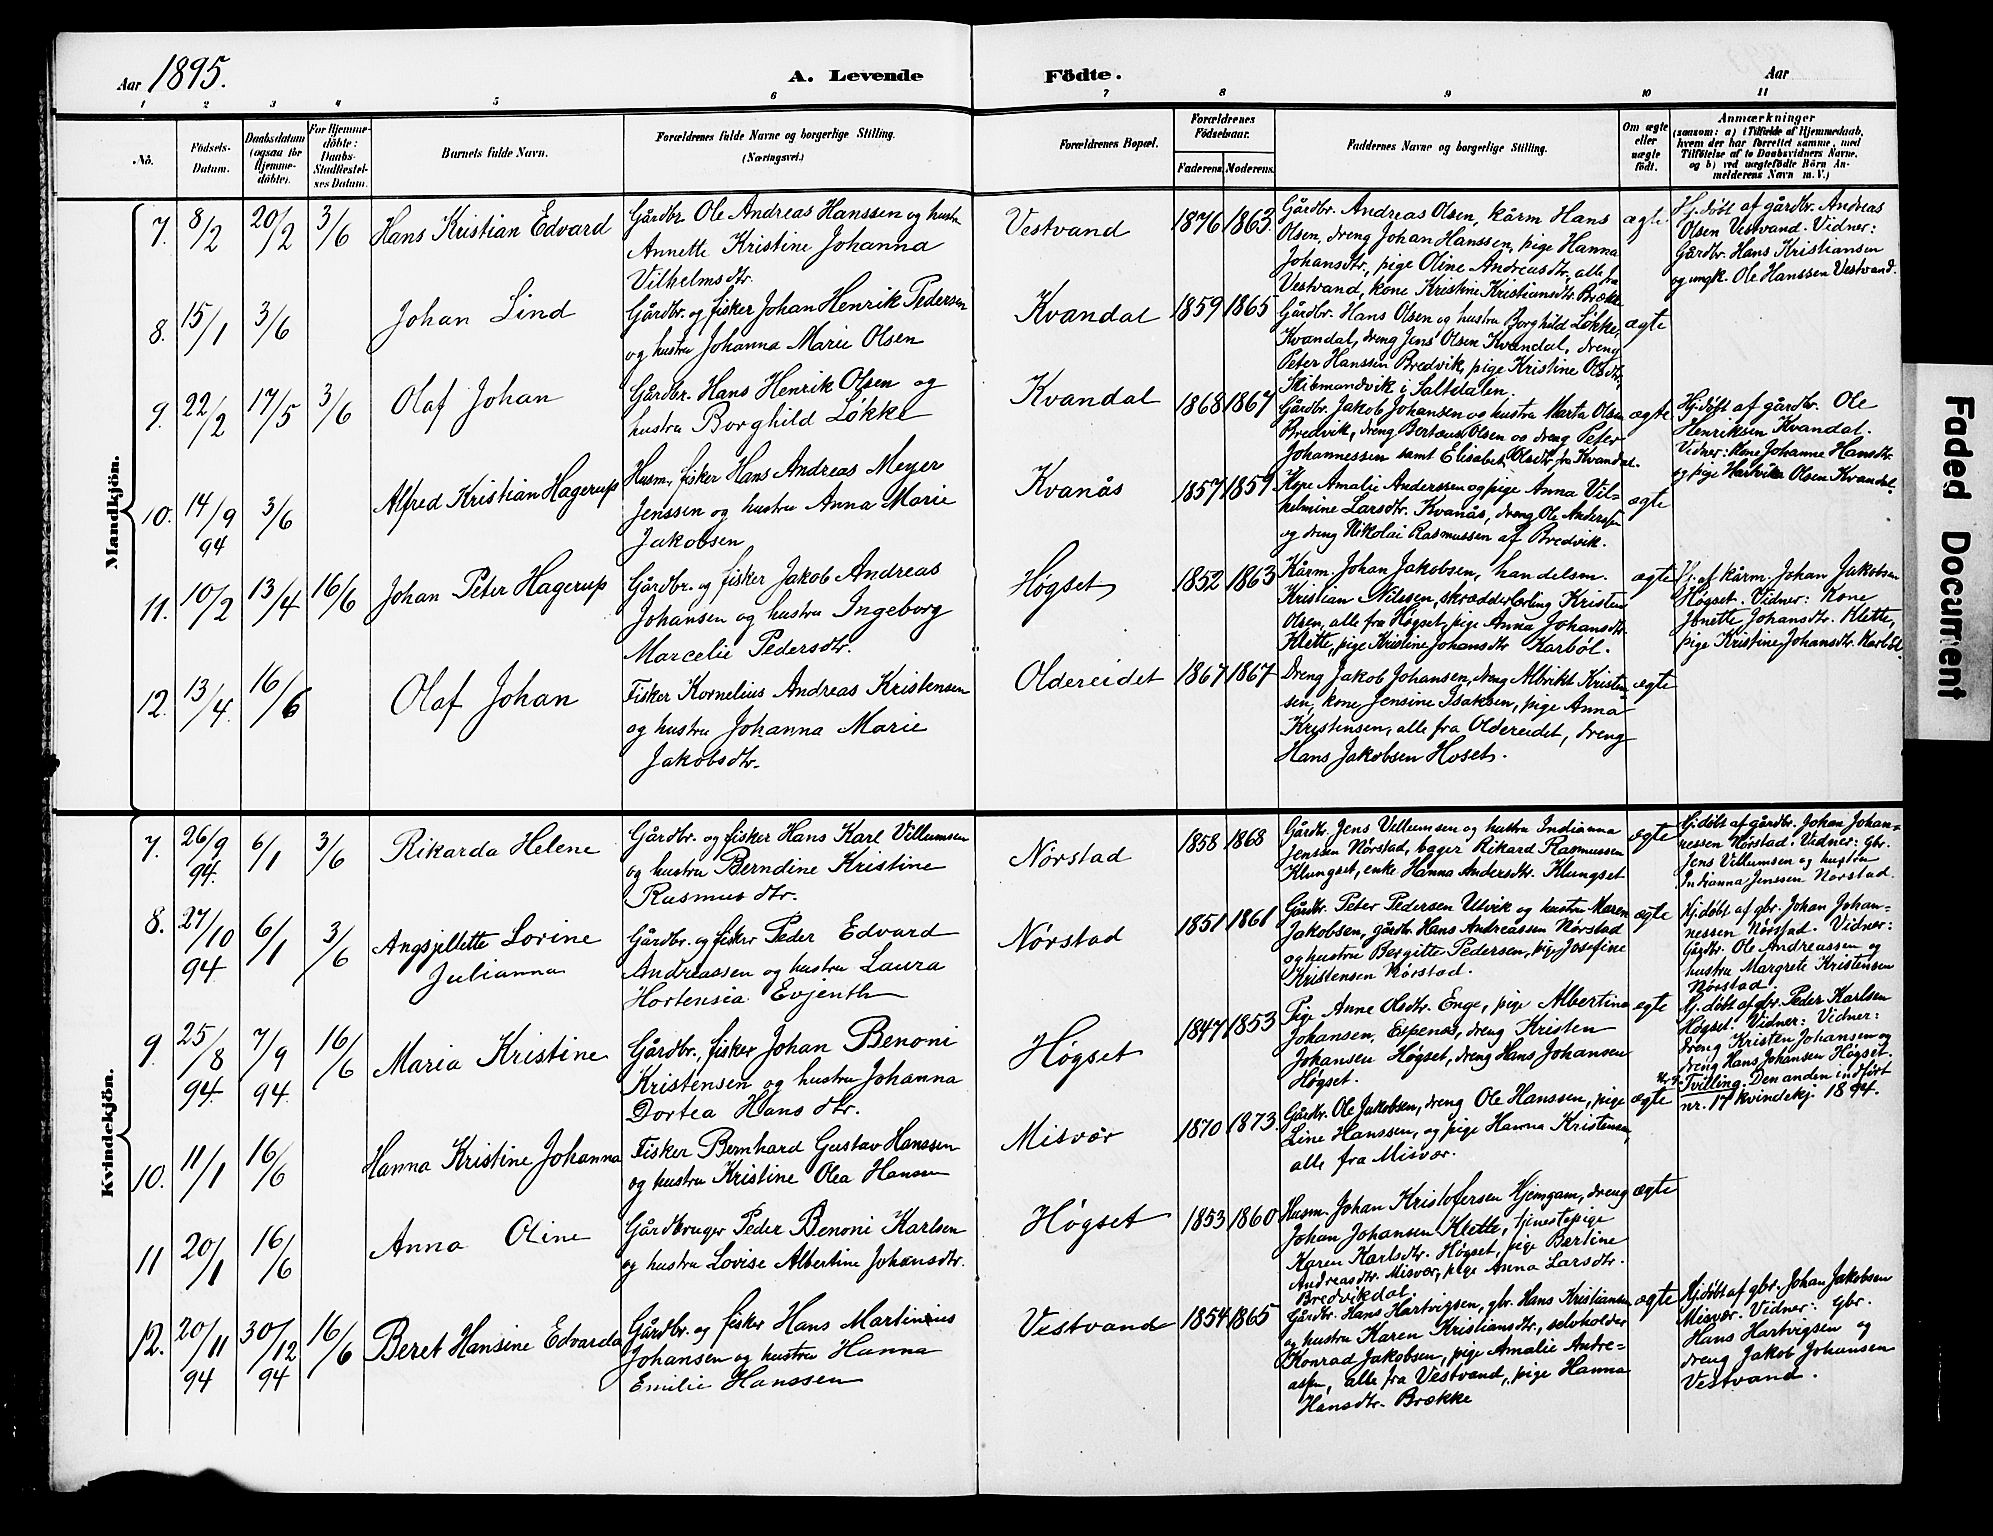 Aar 1895.
A. Levende Födte.
Aar
1 2 3 4 5 6 7 8 9 10 11
No.
Födsels-
Datum.
Daabsdatum
(ogsaa for
Hjemme-
döbte).
For Hjemme-
döbte:
Daabs-
Stadfæstel-
ses Datum.
Barnets fulde Navn.
Forældrenes fulde Navne og borgerlige Stilling.
(Næringsvei.)
Forældrenes Bopæl.
Forældrenes
Födselsaar.
Faderens. Moderens.
Faddernes Navne og borgerlige Stilling.
Om ægte
eller
uægte
födt.
Anmærkninger
(saasom: a) i Tilfælde af Hjemmedaab,
hvem der har forrettet samme, med
Tilföielse af to Daabsvidners Navne,
og b) ved uægtefödte Börn An-
melderens Navn m. V.)
Mandkjön.
7. 8/2 20/2 3/6 Hans Kristian Edvard
Gårdbr. Ole Andreas Hanssen og hustru
Annette Kristine Johanna
Vilhelmsdtr.
Vestvand 1876 1863
Gårdbr. Andreas Olsen, kårm Hans
Olsen, dreng Johan Hanssen, pige Hanna
Johansdtr., pige Oline Andreasdtr., alle fra
Vestvand, kone Kristine Kristiansdtr. Brække
ægte.
Hj.døbt af gårdbr. Andreas
Olsen Vestvand. Vidner:
Gårdbr. Hans Kristiansen
og ungk. Ole Hanssen Vestvand.
8. 15/1 3/6 Johan Lind
Gårdbr. og fisker Johan Henrik Pedersen
og hustru Johanna Marie Olsen
Kvandal 1859 1865
Gårdbr. Hans Olsen og hustru Borghild Løkke,
Kvandal, dreng Jens Olsen Kvandal, dreng
Peter Hanssen Bredvik, pige Kristine Olsdtr.
Skibmandvik i Saltdalen.
ægte
9. 22/2 17/5 3/6 Olaf Johan
Gårdbr. Hans Henrik Olsen og
hustru Borghild Løkke
Kvandal 1868 1867
Gårdbr. Jakob Johansen og hustru Marta Olsen
Bredvik, dreng Bertæus Olsen og dreng Peter
Johannessen samt Elisabet Olsdtr. fra Kvandal.
ægte
Hj.døbt af gårdbr. Ole
Henriksen Kvandal.
Vidner: Kone Johanne Hansdtr.
og pige Hartvika Olsen Kvandal.
10. 14/9 94 3/6 Alfred Kristian Hagerup
Husm., fisker Hans Andreas Meyer
Jenssen og hustru Anna Marie
Jakobsen
Kvanås 1857 1859
Pige Amalie Anderssen og pige Anna Vil-
helmine Larsdtr. Kvanås, dreng Ole Anderssen
og dreng Nikolai Rasmussen af Bredvik.
ægte
11. 10/2 13/4 16/6 Johan Peter Hagerup
Gårdbr. og fisker Jakob Andreas
Johansen og hustru Ingeborg
Marcelie Pedersdtr.
Høgset 1852 1863
Kårm. Johan Jakobsen, handelsm.
Kristian Nilssen, skrædderlærling Kristen
Olsen, alle fra Høgset, pige Anna Johansdtr.
Klette, pige Kristine Johansdtr Karbøl.
ægte
Hj. af kårm. Johan Jakobsen
Høgset. Vidner: Kone
Jonette Johansdtr. Klette,
pige Kristine Johansdtr. Karbøl.
12. 13/4. 16/6 Olaf Johan
Fisker Kornelius Andreas Kristensen
og hustru Johanna Marie
Jakobsdtr.
Oldereidet 1867 1867
Dreng Jakob Johansen, dreng Albrikt Kristen-
sen, kone Jensine Isaksen, pige Anna
Kristensen, alle fra Oldereidet, dreng
Hans Jakobsen Hoset.
ægte
Kvindekjön.
7. 26/9 94. 6/1 3/6 Rikarda Helene
Gårdbr. og fisker Hans Karl Villumsen
og hustru Berndine Kristine
Rasmusdtr.
Nørstad 1858 1868
Gårdbr. Jens Villumsen og hustru Indianna
Jenssen Nørstad, bager Rikard Rasmussen
Klungset, enke Hanna Andersdtr. Klungset
ægte
Hj.døbt af gårdbr. Johan Johan-
nessen Nørstad. Vidner: Gbr.
Jens Villumsen og hustru
Indianna Jenssen Nørstad.
8. 27/10 94 6/1 3/6 Angsjellette Lorine
Julianna
Gårdbr. og fisker Peder Edvard
Andreassen og hustru Laura
Hortensia Evjenth
Nørstad 1851 1861
Gårdbr. Peter Pedersen Ulvik og hustru Maren
Jakobsen, gårdbr. Hans Andreassen Nørstad
og hustru Bergitte Pedersen, pige Josefine
Kristensen Nørstad.
ægte
Hj.døbt af gbr. Johan Johan-
nessen Nørstad. Vidner:
Gårdbr. Ole Andreassen og
hustru Margrete Kristensen
Nørstad.
9. 25/8 94. 7/9 94. 16/6 Maria Kristine
Gårdbr., fisker Johan Benoni
Kristensen og hustru Johanna
Dortea Hansdtr.
Høgset 1847 1853
Pige Anne Olsdtr. Enge, pige Albertina
Johansen, Espenes, dreng Kristen
Johansen Høgset, dreng Hans Johansen
Høgset.
ægte
Hj.døbt af gbr. Peder Karlsen
Høgset. Vidner: Vidner:
Dreng Kristen Johansen og
dreng Hans Johansen Høgset.
Tvilling. Den anden indført
nr. 17 kvindekj. 1894.
10. 11/1 16/6 Hanna Kristine Johanna
Fisker Bernhard Gustav Hanssen
og hustru Kristine Olea Hansen
Misvær 1870 1873.
Gårdbr. Ole Jakobsen, dreng Ole Hanssen, pige
Line Hanssen, og pige Hanna Kristensen,
alle fra Misvær.
ægte
11 20/1 16/6 Anna Oline
Gårdbruger Peder Benoni Karlsen
og hustru Lovise Albertine Johansdtr.
Høgset 1853 1860
Husm. Johan Kristofersen Hjemgam, dreng
Johan Johansen Klette, tjenestepige
Karen Karlsdtr. Høgset, pige Bertine
Andreasdtr. Misvær, pige Anna Larsdtr.
Bredvikdal.
ægte
12. 20/11 94 30/12 94 16/6 Beret Hansine Edvarda
Gårdbr. og fisker Hans Martinius
Johansen og hustru Hanna
Emilie Hanssen
Vestvand 1854 1865
Gårdbr. Hans Hartvigsen, gbr. Hans Kristiansen
og hustru Karen Kristiansdtr., selvholder
Konrad Jakobsen, pige Amalie Andre-
assen, alle fra Vestvand, pige Hanna
Hansdtr. Brække
ægte
Hj.døbt af gbr. Johan Jakobsen
Misvær. Vidner: Gbr.
Hans Hartvigsen og
dreng Jakob Johansen
Vestvand.
Faded Document